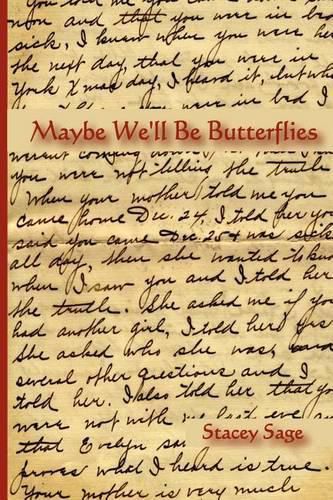 You told me you
now and that you were in bed
sick, I knew where you were her
the next day, that you were in
York Xmas day, I heard it, but who
you were in bed I
Maybe We'll Be Butterflies
weren't coming down
you were not telling the truth
When your mother told me you
came home Dec. 24, I told her you
said you came Dec. 25 & was sick
all day, then she wanted to know
when I saw you and I told her
the truth. She asked me if you
had another girl, I told her yes
She asked who she was, and
several other questions and I
told her. I also told her that you
were not with me last eve
that Evelyn sa
Stacey Sage
proves what I heard is true.
Your mother is very much